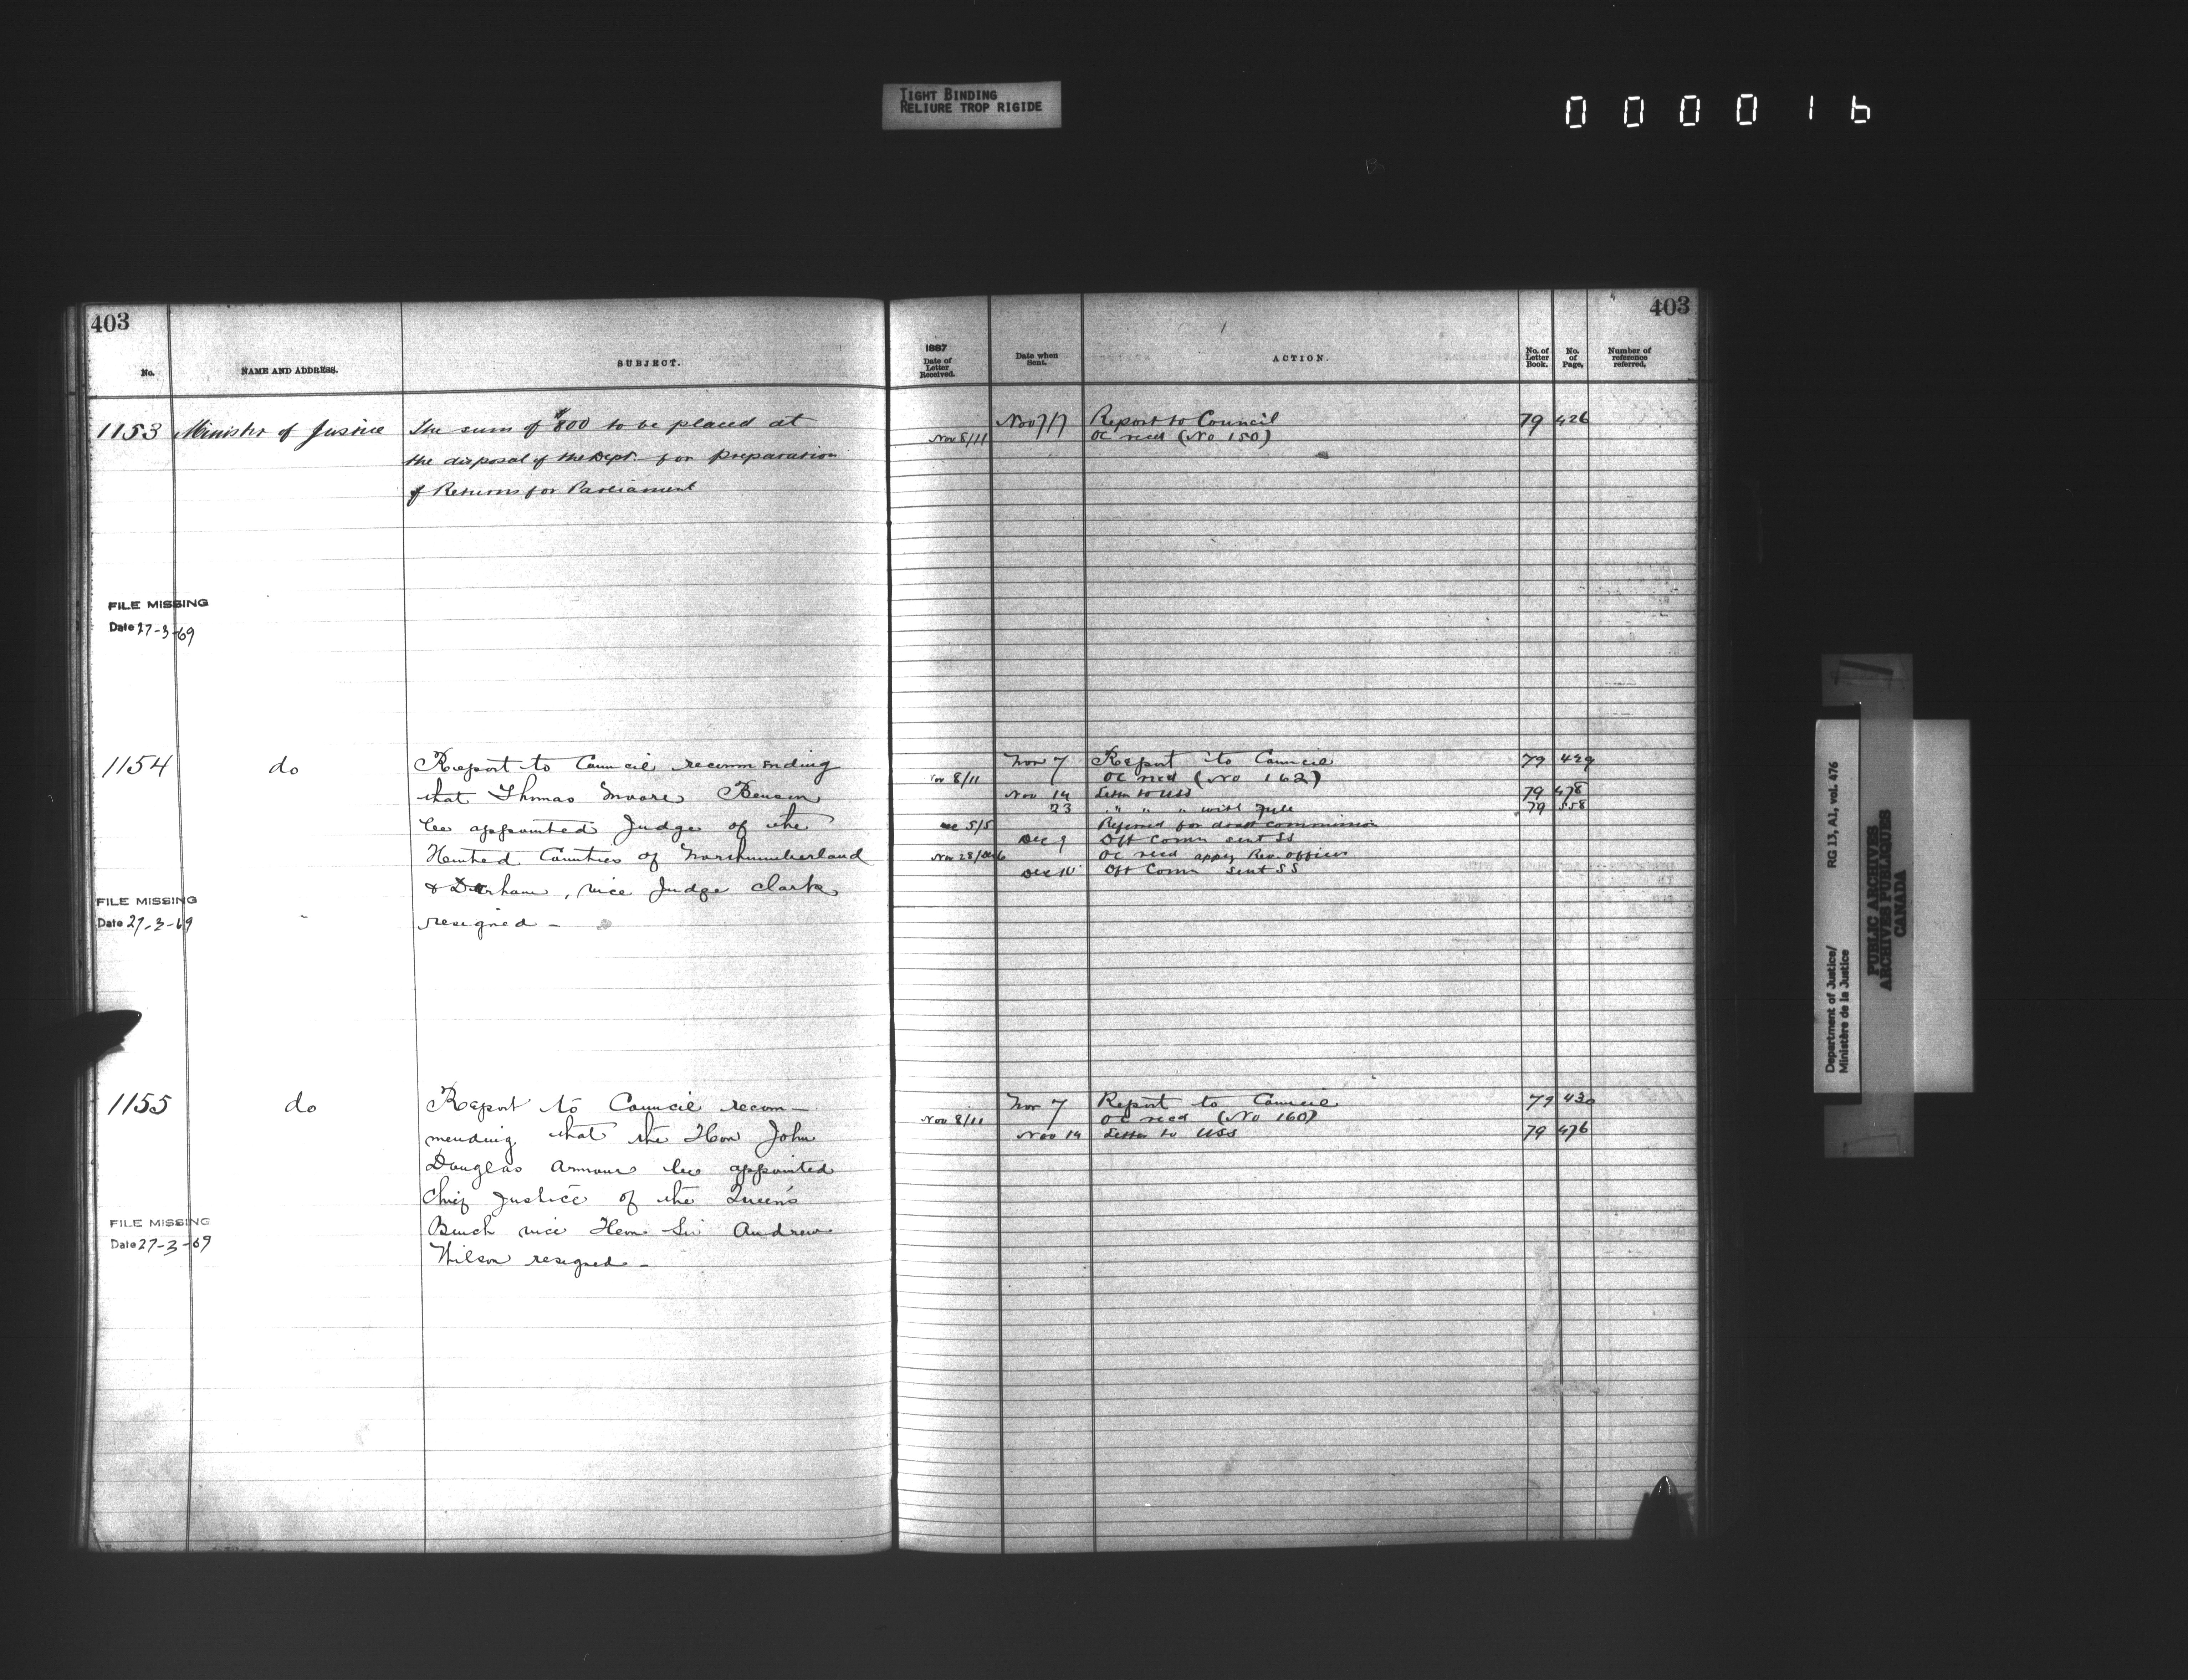 TIGHT BINDING
RELIURE TROP RIGIDE
000016
403
No.
NAME AND ADDRESS.
SUBJECT.
1153 Minister of Justice The sum of $800 to be placed at
the disposal of the Dept. for preparation
of Returns for Parliament
FILE MISSING
Date 27-3-69
1154 do Report to Council recommending
that Thomas Moore Benson
be appointed Judge of the
United Counties of Northumberland
& Durham, vice Judge Clark
resigned -
FILE MISSING
Date 27-3-69
1155 do Report to Council recom-
mending that the Hon John
Douglas Armour be appointed
Chief Justice of the Queen's
Bench vice Hon Sir Andrew
Wilson resigned -
FILE MISSING
Date 27-3-69
403
1887
Date of
Letter
Received.
Date when
Sent.
ACTION.
No. of
Letter
Book.
No.
of
Page,
Number of
reference
referred,
Nov 7/7 Report to Council 79 426
Nov 8/11 OC recd (No 150)
Nov 7 Report to Council 79 429
8/11 OC recd (No 162)
Nov 14 Letter to USS 79 478
23 " " " with 79 558
5/5 Referred for draft commission
Dec 9 Dft Comn sent SS
Nov 28/Dec 6 OC recd appg Rev. officer
Dec 10 Dft Comn sent SS
Nov 7 Report to Council 79 430
Nov 8/11 OC recd (No 160)
Nov 14 Letter to USS 79 476
Department of Justice/
Ministère de la Justice
RG 13, A1, vol. 476
PUBLIC ARCHIVES
ARCHIVES PUBLIQUES
CANADA